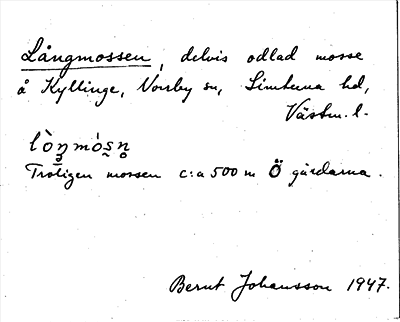 Långmossen, delvis odlad mosse
å Kyllinge, Norrby sn, Simtuna hd,
Västm. l.
lòŋmòsn̥
Troligen mossen c:a 500 m Ö gårdarna.
Bernt Johansson 1947.